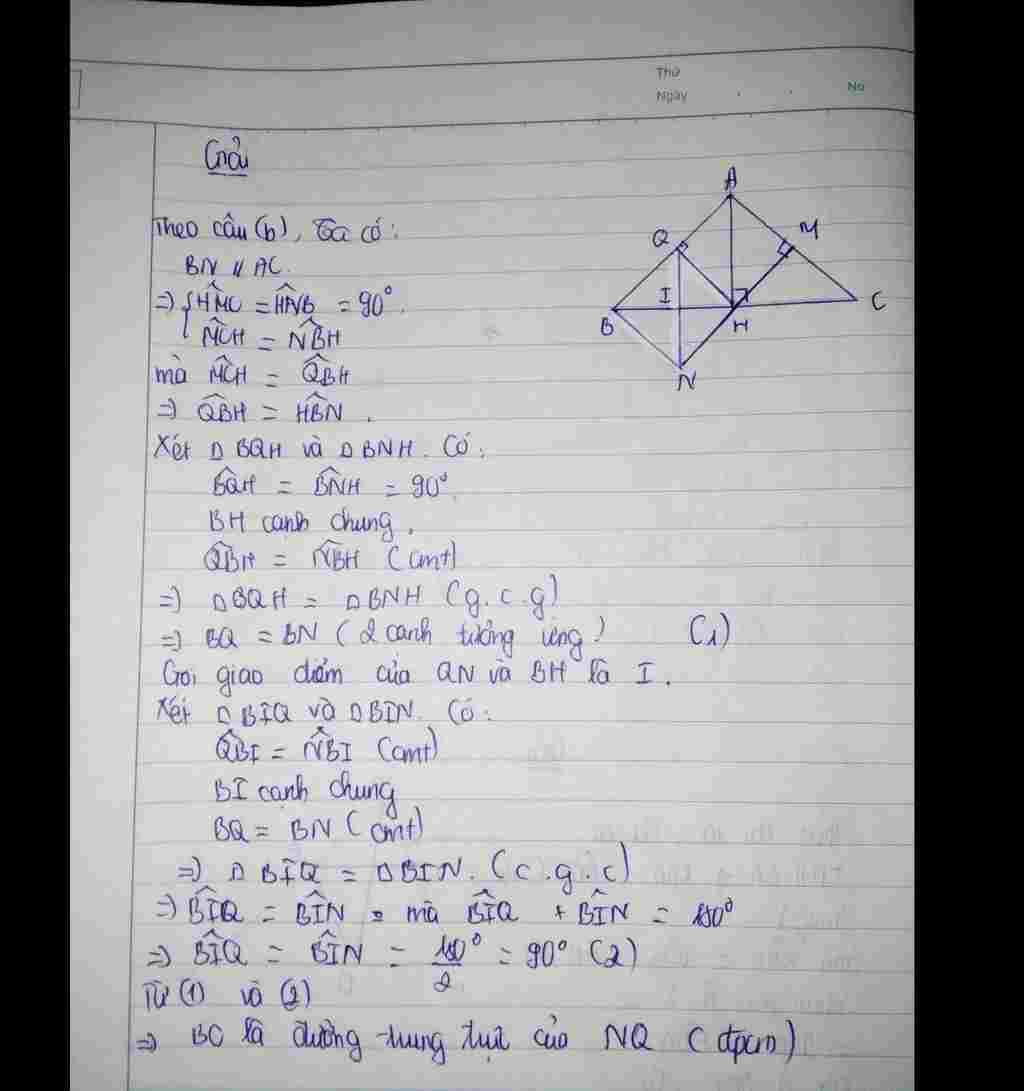 Thứ
Ngày . . No
Giải
A
Q M
I
B H C
N
Theo câu (b), Ta có:
BN // AC.
=> { HM̂C = HN̂B = 90°.
MĈH = NB̂H
mà MĈH = QB̂H
=> QB̂H = HB̂N.
Xét Δ BQH và Δ BNH. Có:
BQ̂H = BN̂H = 90°.
BH cạnh chung.
QB̂H = NB̂H (cmt)
=> Δ BQH = Δ BNH (g.c.g)
=> BQ = BN (2 cạnh tương ứng) (1)
Gọi giao điểm của QN và BH là I.
Xét Δ BIQ và Δ BIN. Có:
QB̂I = NB̂I (cmt)
BI cạnh chung
BQ = BN (cmt)
=> Δ BIQ = Δ BIN. (c.g.c)
=> BÎQ = BÎN mà BÎQ + BÎN = 180°
=> BÎQ = BÎN = 180°/2 = 90° (2)
Từ (1) và (2)
=> BC là đường trung trực của NQ (đpcm)